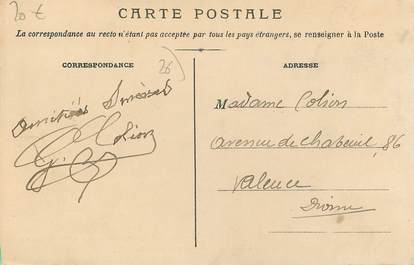 20 €
CARTE POSTALE
La correspondance au recto n'étant pas acceptée par tous les pays étrangers, se renseigner à la Poste
CORRESPONDANCE
26
ADRESSE
Amitiés Sincères
Madame Colion
avenue de Chabeuil, 86
Valence
Drôme